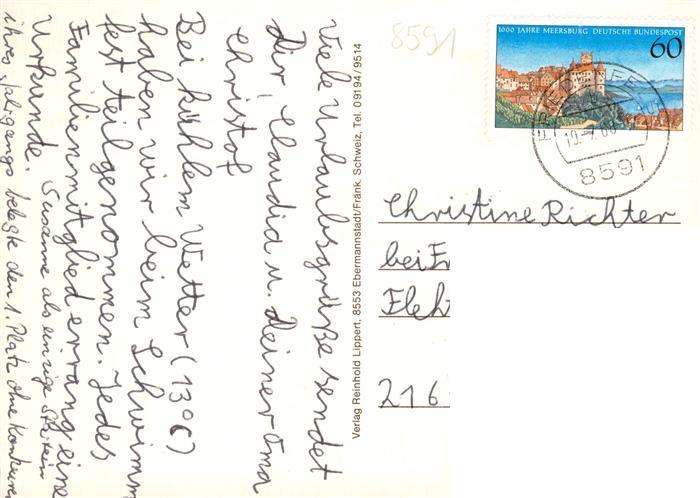 Viele Urlaubsgrüße sendet
Dir, Claudia u. Deiner Oma
Christof
Bei kühlem Wetter (13°C)
haben wir beim Schwimm
fest teilgenommen. Jedes
Familienmitglied errang eine
Urkunde.
Susanne als einzige
ihres Jahrgangs belegte den 1. Platz ohne
Verlag Reinhold Lippert, 8553 Ebermannstadt/Fränk. Schweiz, Tel. 09194/9514
8591
1000 JAHRE MEERSBURG DEUTSCHE BUNDESPOST
60
8591
Christine Richter
bei
216